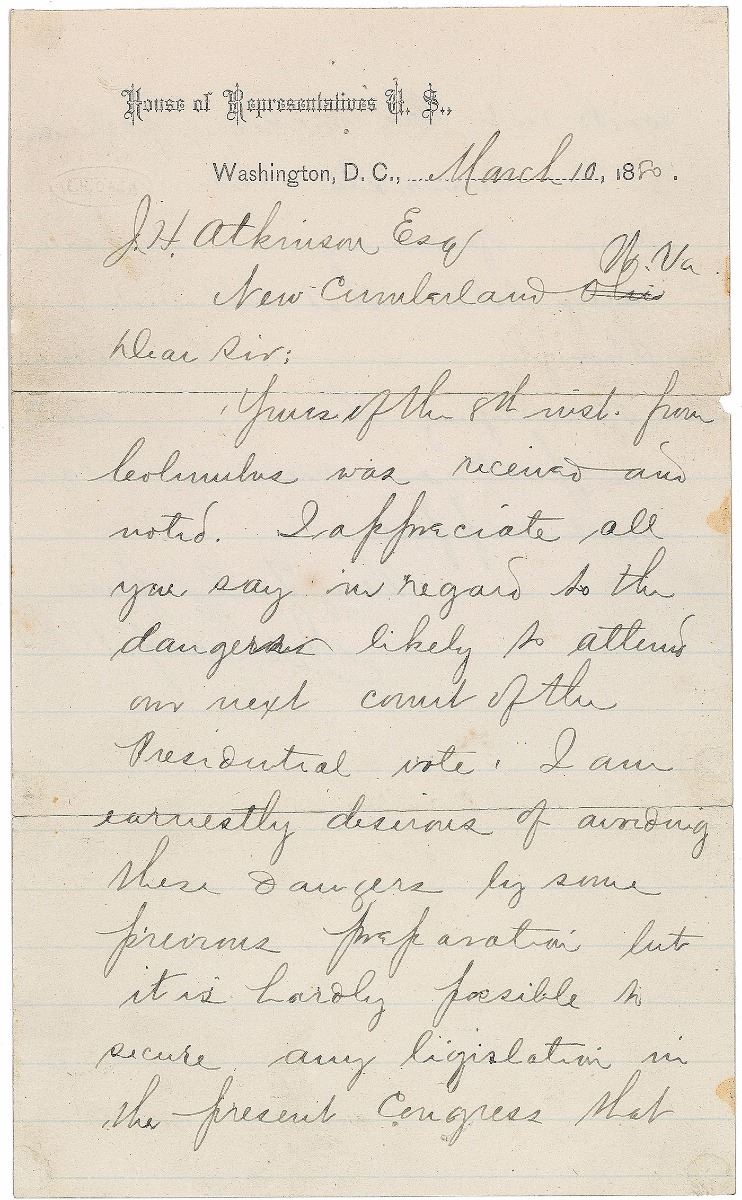 House of Representatives U. S.,
Washington, D. C., March 10, 1880.
J. H. Atkinson Esq
W. Va
New Cumberland Ohio
Dear Sir:
Yours of the 8th inst. from
Columbus was received and
noted. I appreciate all
you say in regard to the
dangers likely to attend
our next count of the
Presidential vote. I am
earnestly desirous of avoiding
these dangers by some
previous preparation but
it is hardly possible to
secure any legislation in
the present Congress that